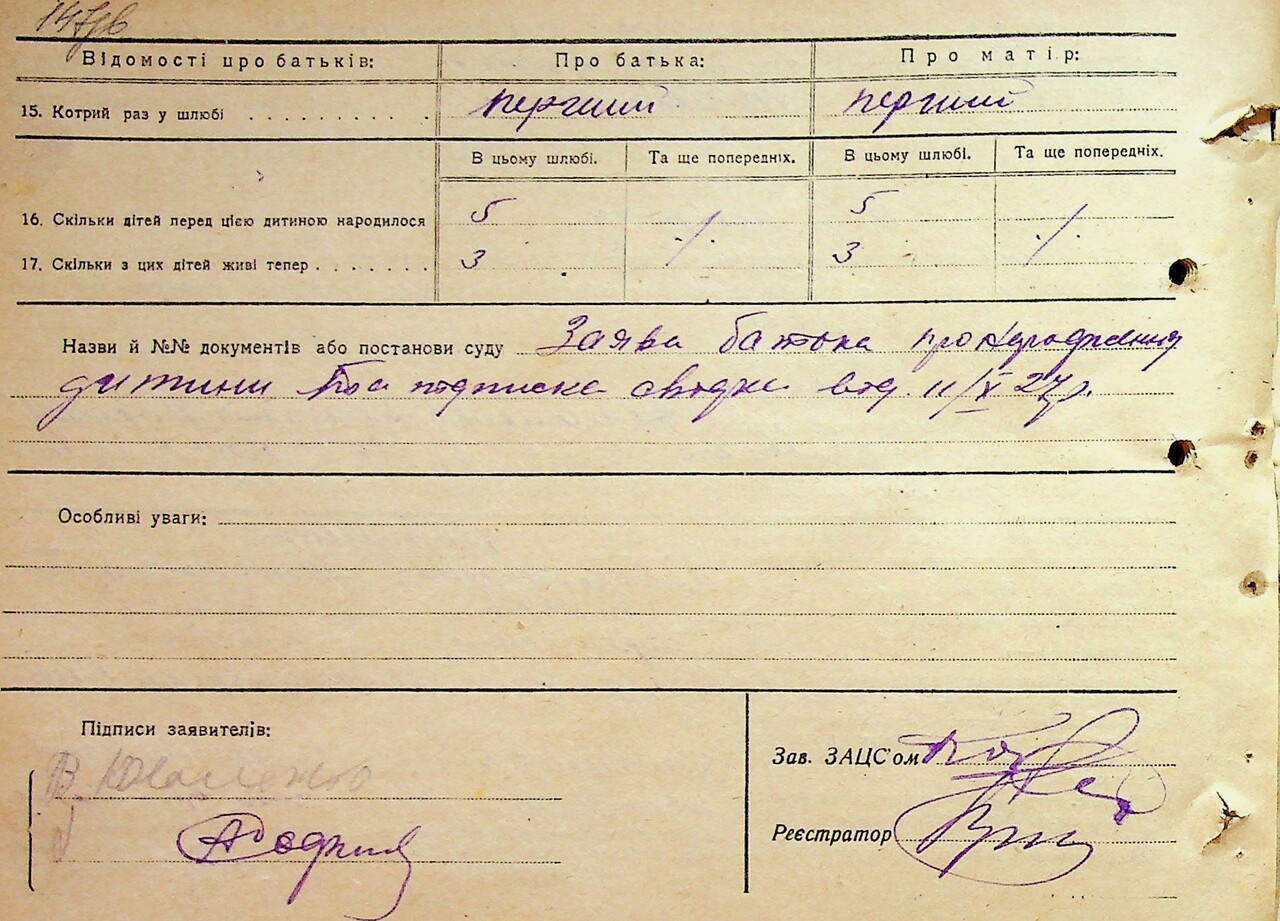 147зв
Відомості про батьків: Про батька: Про матір:
15. Котрий раз у шлюбі . . . . . . . . . . перший перший
В цьому шлюбі. Та ще попередніх. В цьому шлюбі. Та ще попередніх.
16. Скільки дітей перед цією дитиною народилося 5 5
17. Скільки з цих дітей живі тепер . . . . . . . 3 ·/· 3 ·/·
Назви й №№ документів або постанови суду Заява батька про народження
дитини та підписка свідків від 11/X 27р.
Особливі уваги:
Підписи заявителів:
В Коваленко
Зав. ЗАЦС'ом
Реєстратор